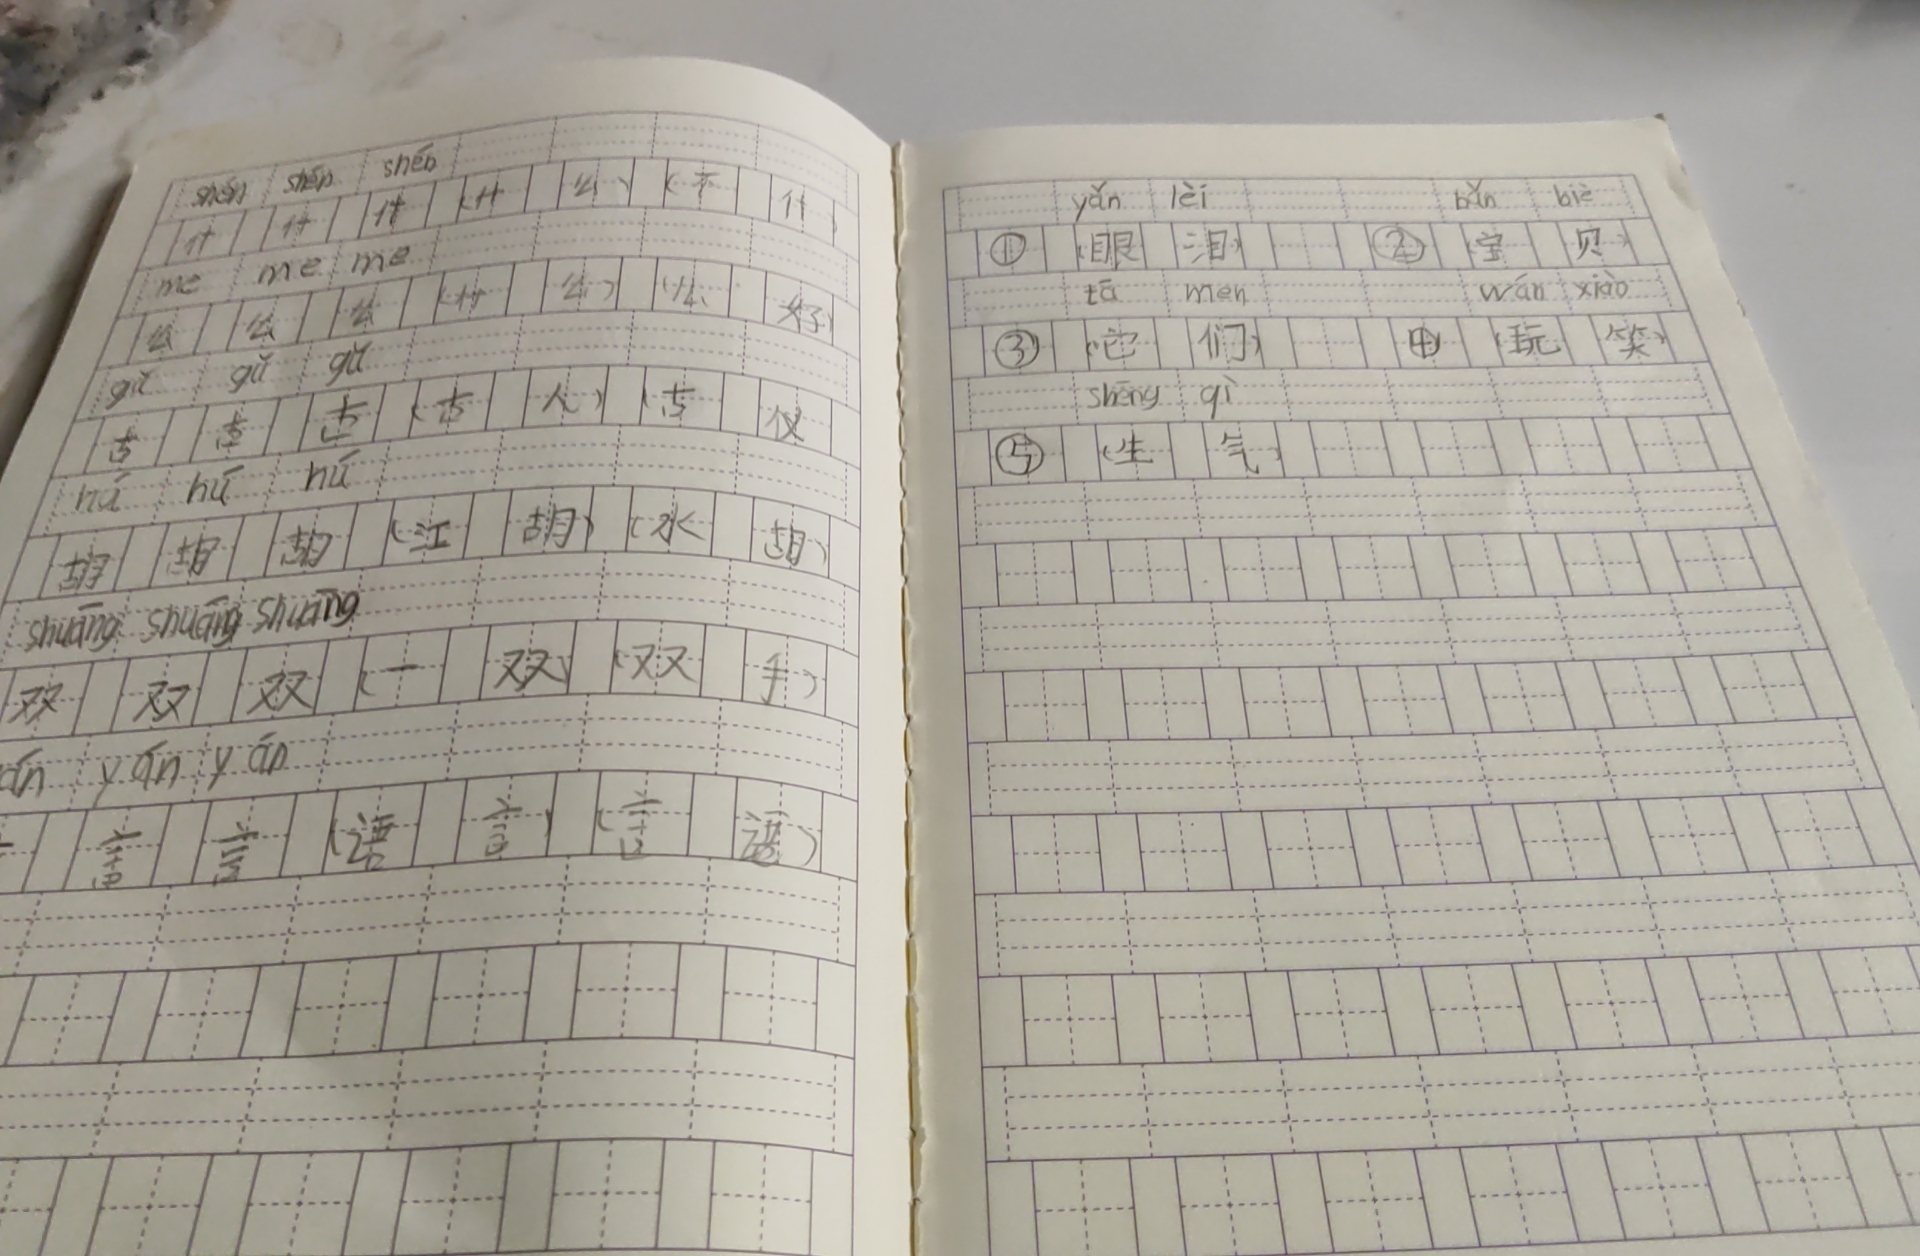 shén shén shén
什 什 什 (什 么) (不 什)
me me me
么 么 么 (什 么) (么 好)
gǔ gǔ gǔ
古 古 古 (古 人) (古 仪
hú hú hú
胡 胡 胡 (江 胡) (水 胡)
shuāng shuāng shuāng
双 双 双 (一 双) (双 手)
yán yán
言 言 (语 言) (言 语)
yǎn lèi bǎn biè
① (眼 泪) ② (宝 贝)
tā men wán xiào
③ (它 们) ④ (玩 笑)
shēng qì
⑤ (生 气)